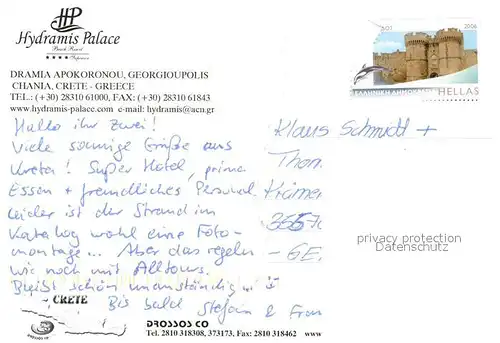 HP
Hydramis Palace
Beach Resort
Superior
DRAMIA APOKORONOU, GEORGIOUPOLIS
CHANIA, CRETE - GREECE
TEL.: (+30) 28310 61000, FAX: (+30) 28310 61843
www.hydramis-palace.com e-mail: hydramis@acn.gr
2006
HELLAS
Hallo ihr Zwei!
Viele sonnige Grüße aus
Kreta! Super Hotel, prima
Essen + freundliches Personal.
Leider ist der Strand im
Katalog wohl eine Foto-
montage... Aber das regeln
wir noch mit Alltours.
Bleibt schön unanständig...
Bis bald Stefan &
Klaus Schmidt +
Krämer
privacy protection
Datenschutz
CRETE
DROSSOS CO
Tel. 2810 318308, 373173, Fax: 2810 318462 www